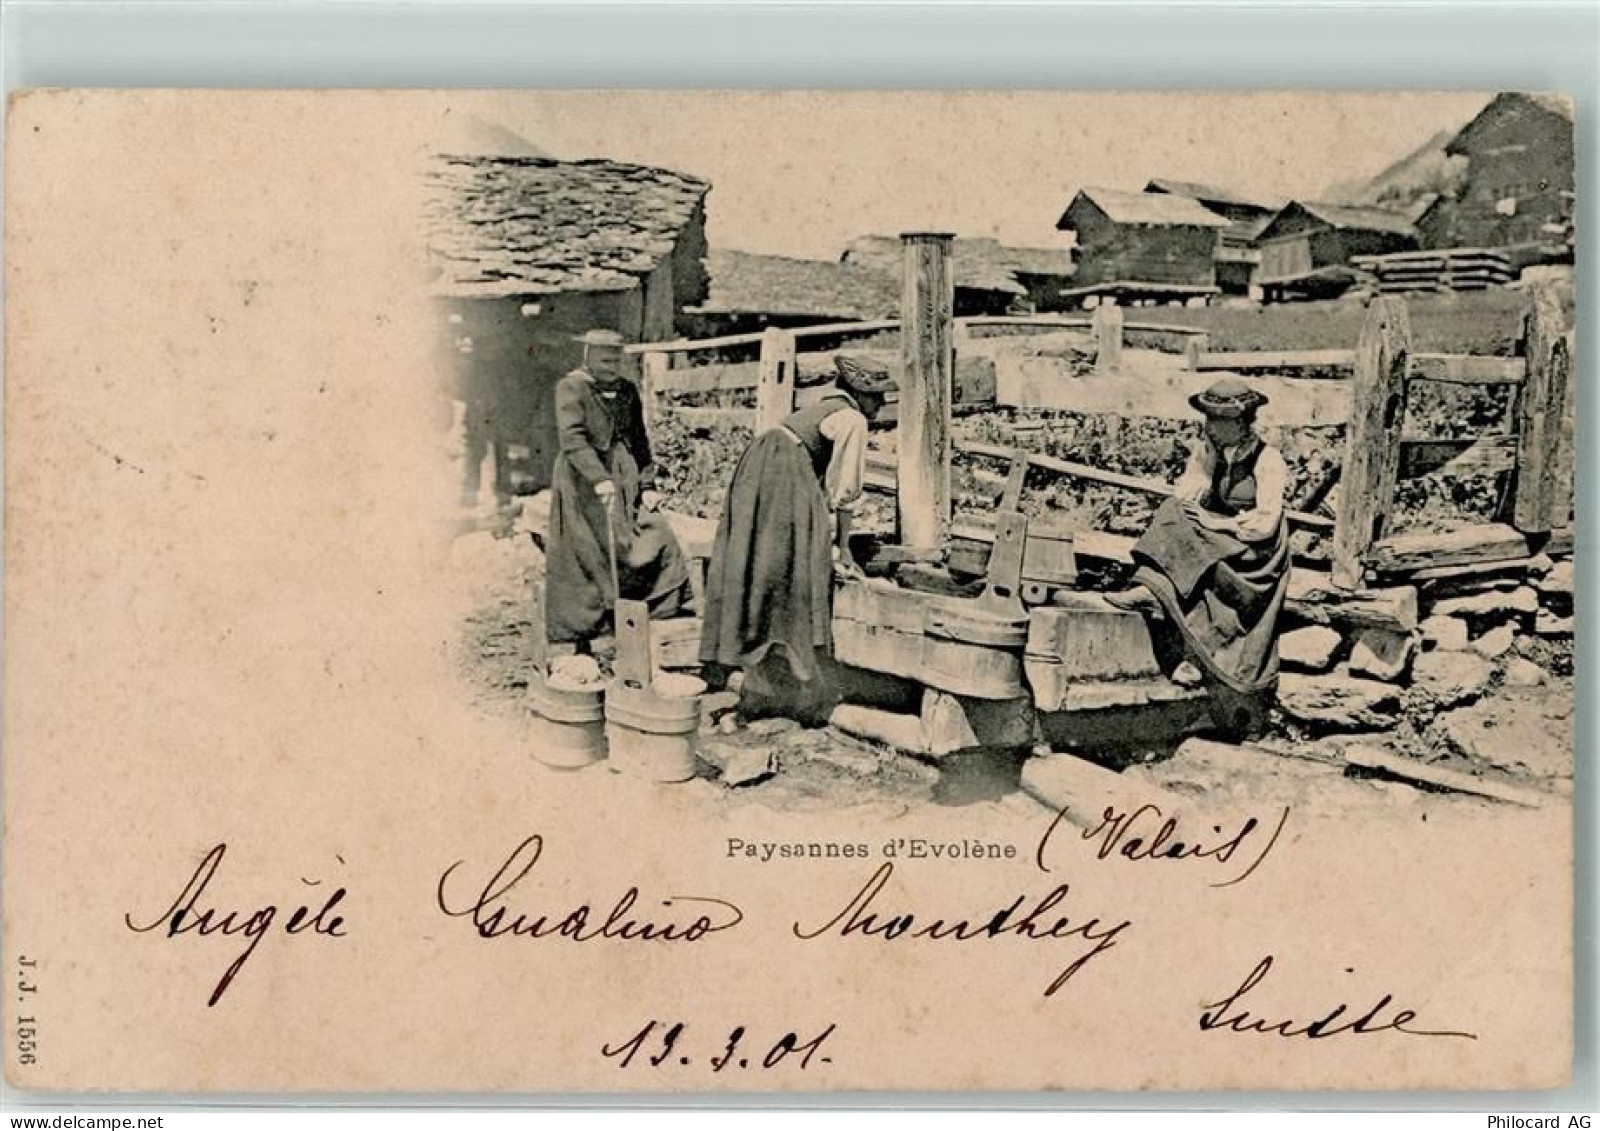 Paysannes d'Evolène (Valais)
Angèle Gualino Monthey
Suisse
13.3.01.
J.J. 1556
Philocard AG